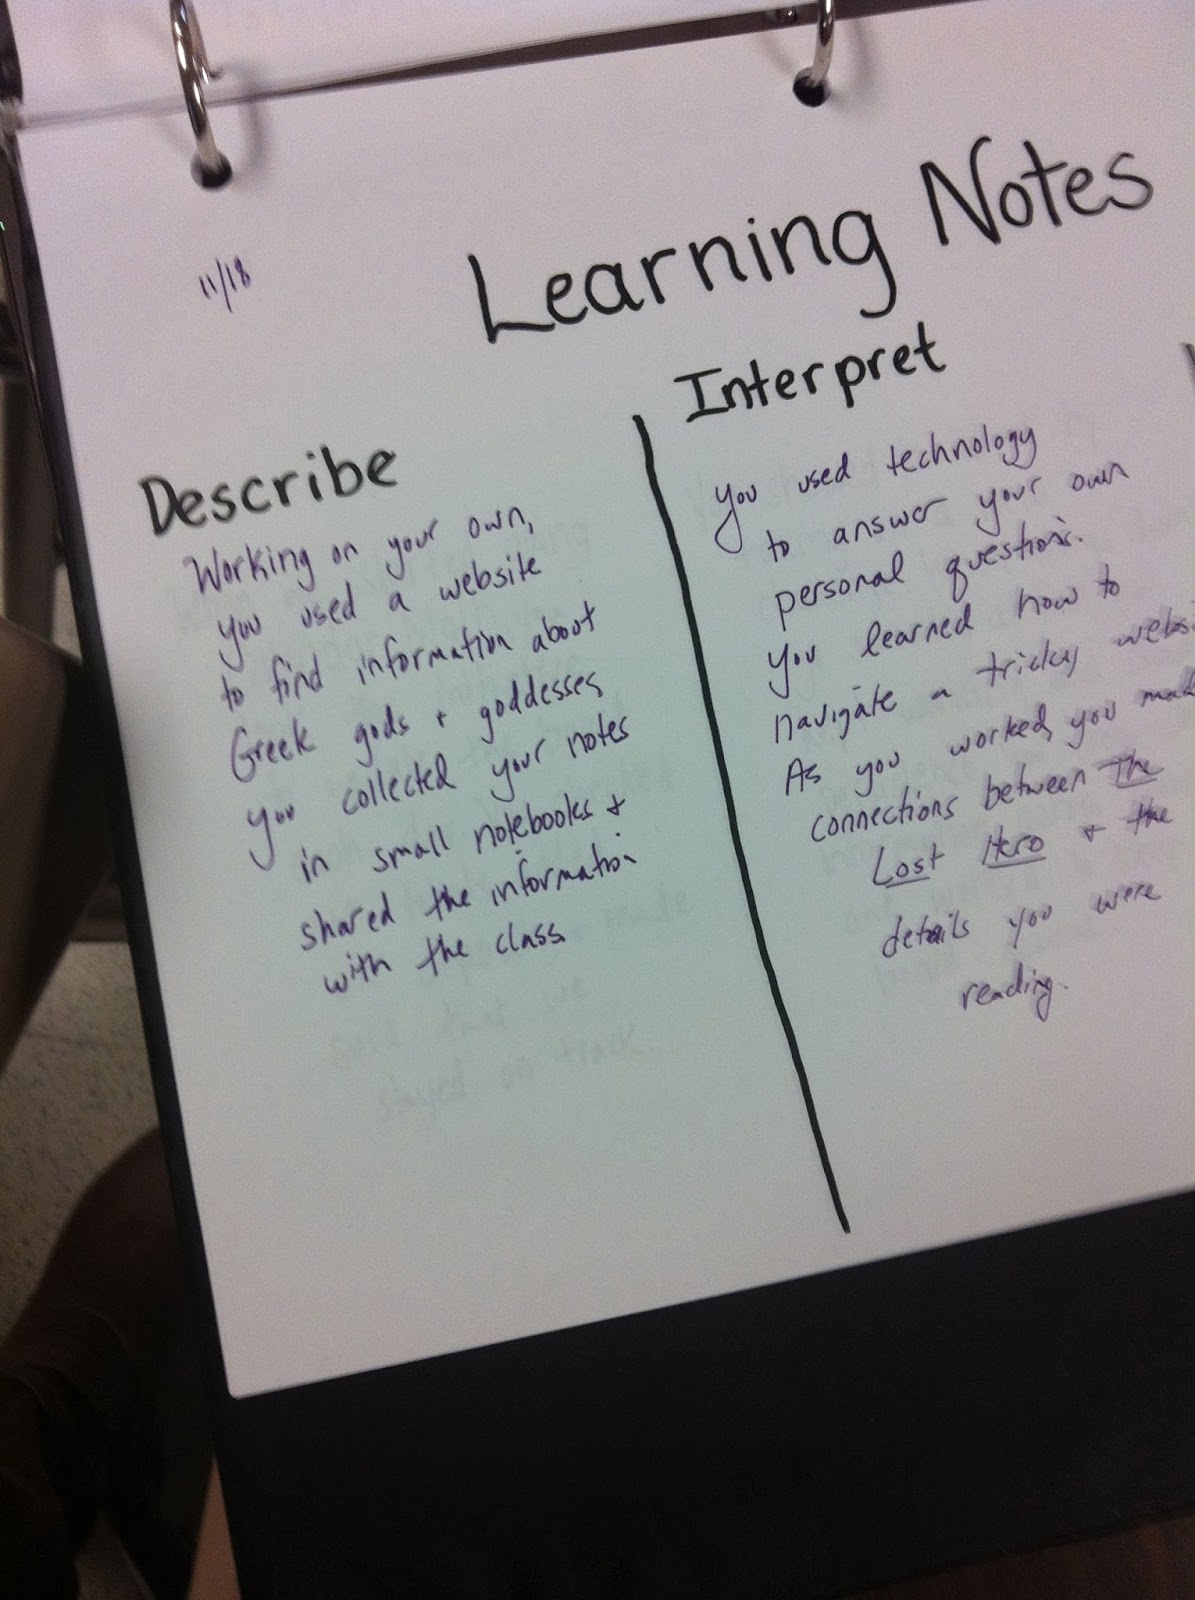 11/18
Learning Notes
Describe
Working on your own,
you used a website
to find information about
Greek gods + goddesses
you collected your notes
in small notebooks +
shared the information
with the class
Interpret
you used technology
to answer your own
personal questions.
you learned how to
navigate a tricky webs
As you worked, you mad
connections between The
Lost Hero + the
details you were
reading.
stayed on track.